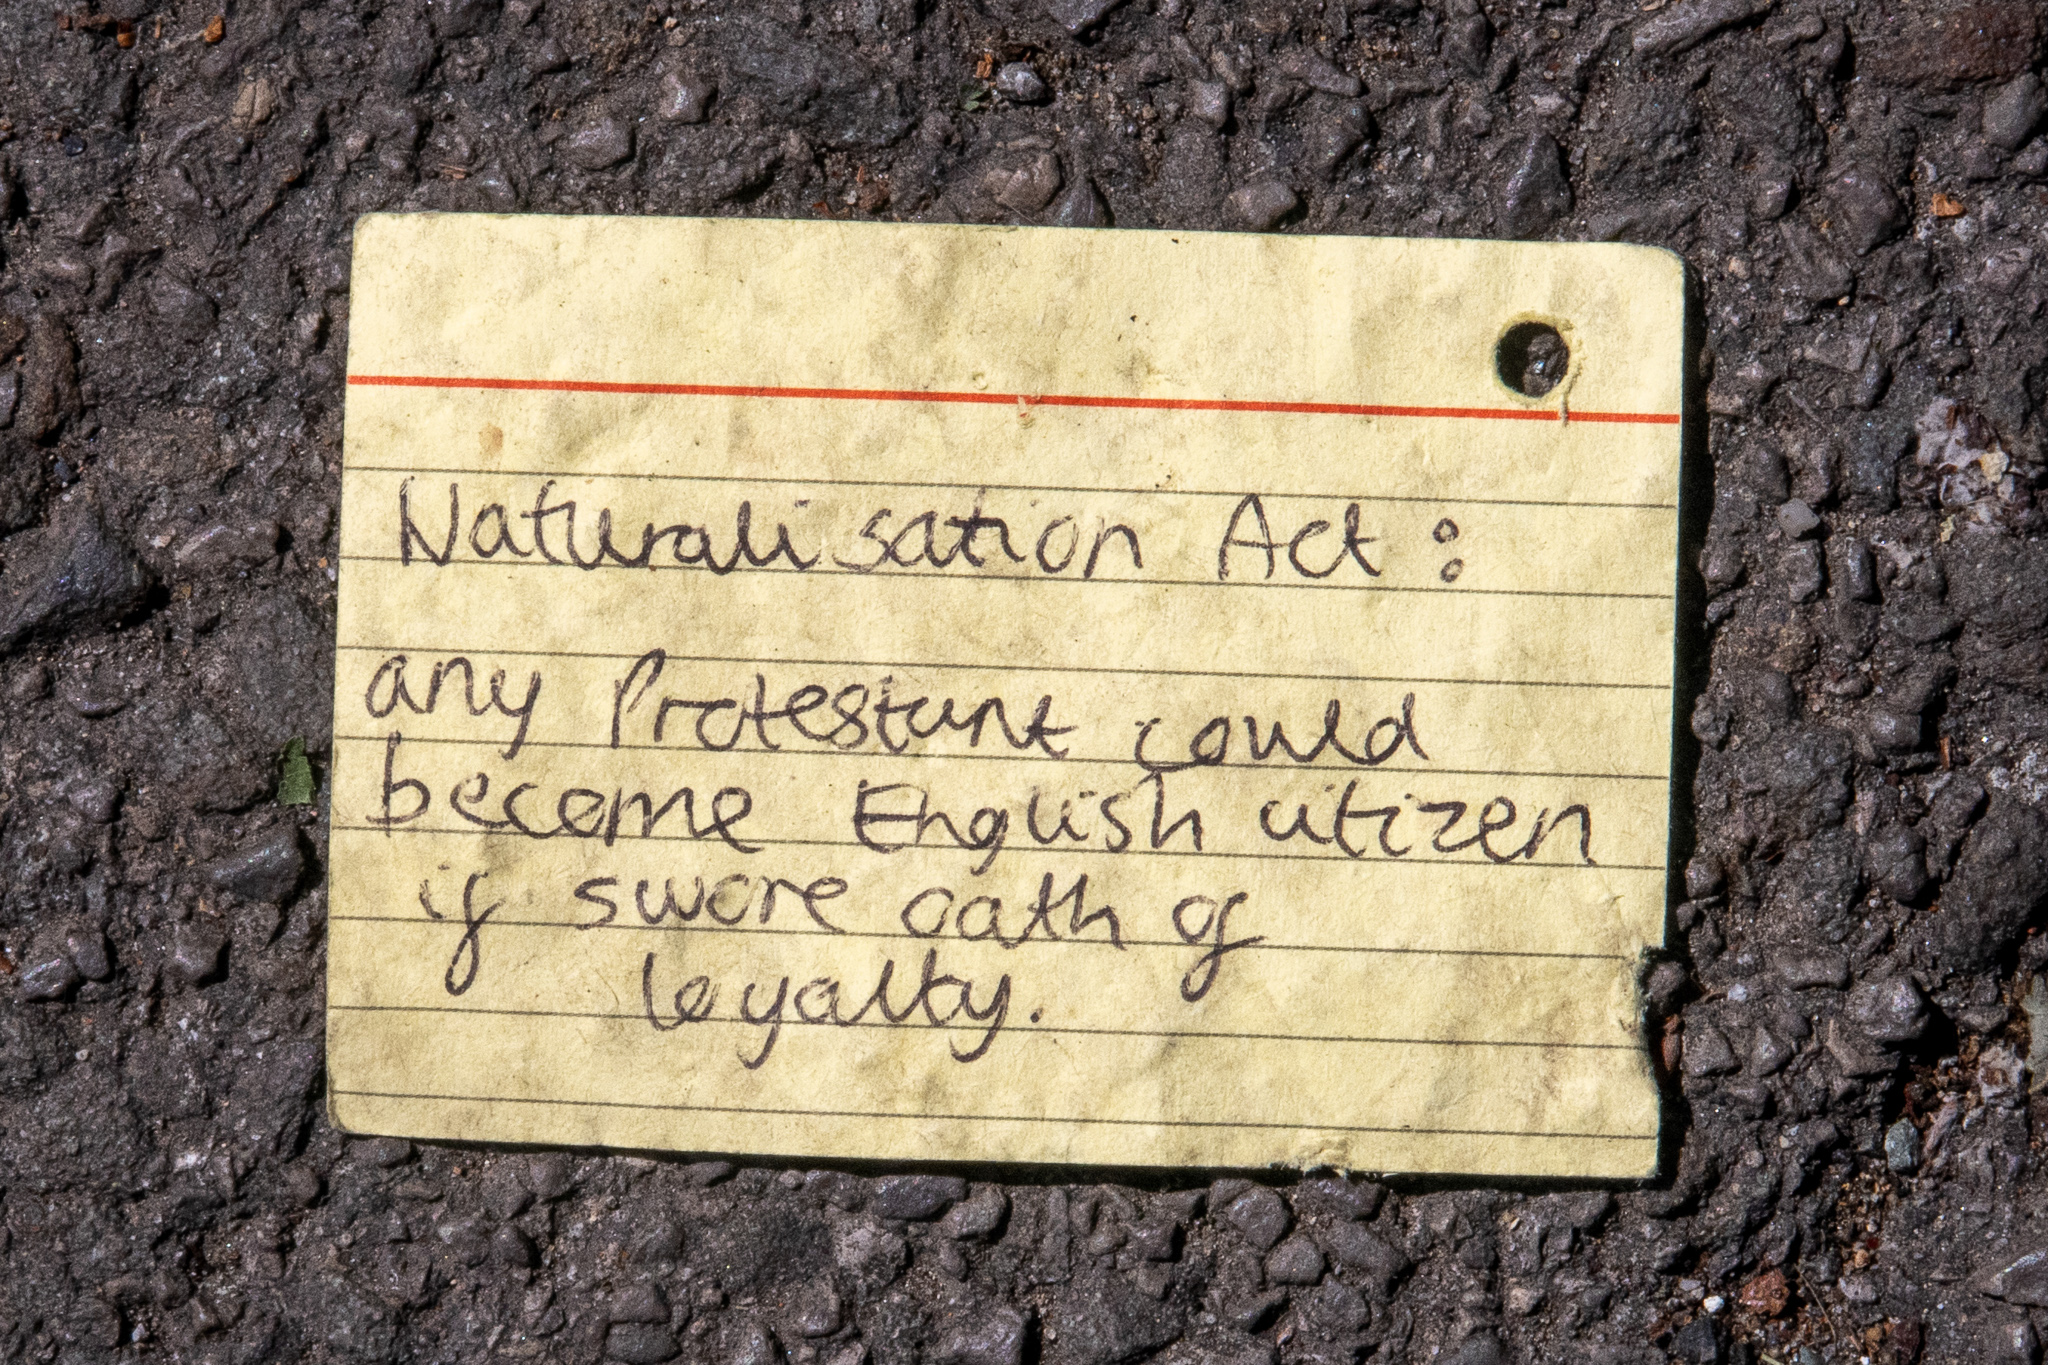 Naturalisation Act :
any Protestant could
become English citizen
if swore oath of
loyalty.